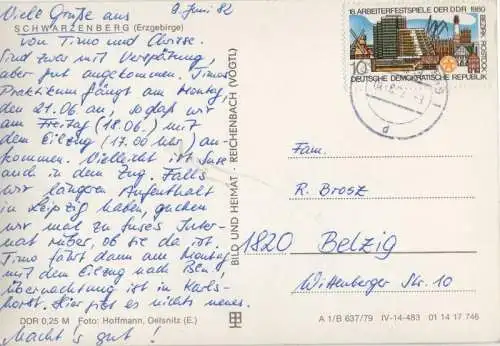 Viele Grüße aus 9. Juni 82
SCHWARZENBERG (Erzgebirge)
von Timo und
Sind zwar mit Verspätung,
aber gut angekommen. Timos
Praktikum fängt am Montag,
den 21.06. an, so daß wir
am Freitag (18.06.) mit
dem Eilzug (17.00 Uhr) an-
kommen. Vielleicht ist
auch in dem Zug. Falls
wir längeren Aufenthalt
in Leipzig haben, gucken
wir mal zu Inter-
nat rüber, ob sie da ist.
Timo fährt dann am Montag
mit dem Eilzug nach Bln.
Übernachtung ist in Karls-
horst. Hier gibt es nichts neues.
DDR 0,25 M Foto: Hoffmann, Oelsnitz (E.)
Macht's gut!
BILD UND HEIMAT · REICHENBACH (VOGTL)
18. ARBEITERFESTSPIELE DER DDR 1980
BEZIRK ROSTOCK
10
DEUTSCHE DEMOKRATISCHE REPUBLIK
d
Fam.
R. Brosz
1820 Belzig
Wittenberger Str. 10
A 1/B 637/79 IV-14-483 01 14 17 746